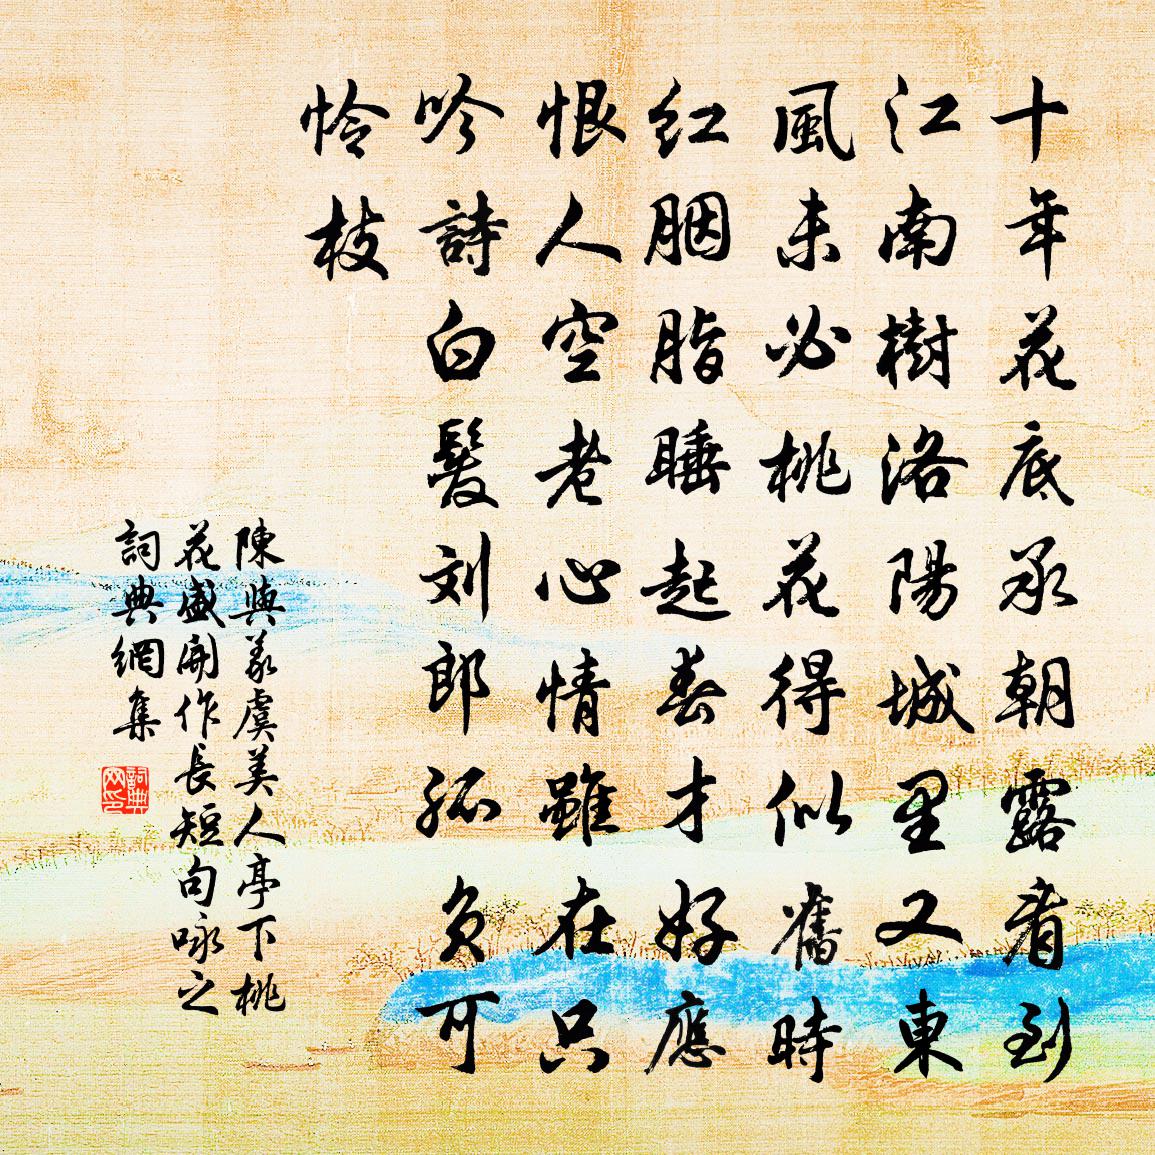 十年花底承朝露看到
江南樹洛陽城里又東
風未必桃花得似舊時
红胭脂睡起春才好應
恨人空老心情雖在只
吟詩白髮刘郎孤负可
怜枝
陳與義虞美人亭下桃
花盛開作長短句咏之
詞典網集
詞典网印